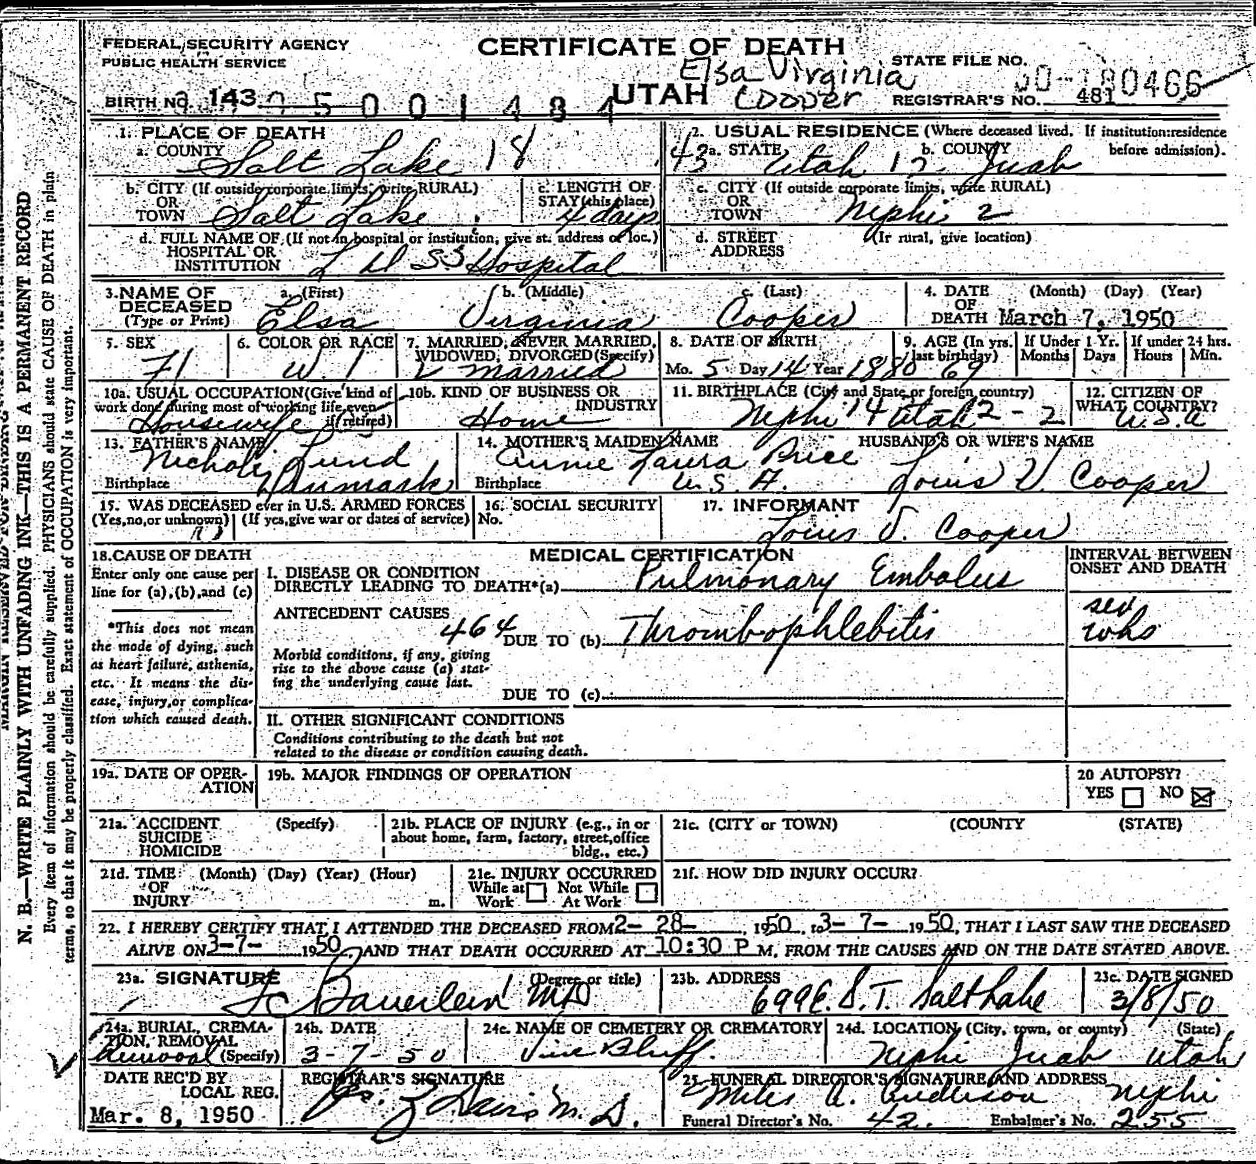 FEDERAL SECURITY AGENCY
PUBLIC HEALTH SERVICE
CERTIFICATE OF DEATH
UTAH
Elsa Virginia
Cooper
STATE FILE NO. 50-180466
BIRTH NO. 143
5 0 0 1 4 8 4
REGISTRAR'S NO. 481
1. PLACE OF DEATH
a. COUNTY Salt Lake 18
2. USUAL RESIDENCE (Where deceased lived. If institution: residence before admission).
43 a. STATE Utah 12 b. COUNTY Juab
b. CITY (If outside corporate limits, write RURAL) OR TOWN Salt Lake
c. LENGTH OF STAY (this place) 4 days
c. CITY (If outside corporate limits, write RURAL) OR TOWN Nephi 2
d. FULL NAME OF (If not in hospital or institution, give st. address or loc.) HOSPITAL OR INSTITUTION L D S Hospital
d. STREET ADDRESS (If rural, give location)
3. NAME OF DECEASED (Type or Print)
a. (First) Elsa
b. (Middle) Virginia
c. (Last) Cooper
4. DATE OF DEATH (Month) (Day) (Year) March 7, 1950
5. SEX F
6. COLOR OR RACE W
7. MARRIED, NEVER MARRIED, WIDOWED, DIVORCED (Specify) married
8. DATE OF BIRTH Mo. 5 Day 14 Year 1880
9. AGE (In yrs. last birthday) 69
If Under 1 Yr. Months Days
If under 24 hrs. Hours Min.
10a. USUAL OCCUPATION (Give kind of work done during most of working life, even if retired) Housewife
10b. KIND OF BUSINESS OR INDUSTRY Home
11. BIRTHPLACE (City and State or foreign country) Nephi 14 Utah 2 - 2
12. CITIZEN OF WHAT COUNTRY? U.S.A
13. FATHER'S NAME Lund
Birthplace Denmark
14. MOTHER'S MAIDEN NAME Annie Laura Price
Birthplace U.S.A.
HUSBAND'S OR WIFE'S NAME Louis V. Cooper
15. WAS DECEASED ever in U.S. ARMED FORCES
(Yes, no, or unknown) (If yes, give war or dates of service)
16. SOCIAL SECURITY No.
17. INFORMANT Louis V. Cooper
18. CAUSE OF DEATH
Enter only one cause per line for (a), (b), and (c)
*This does not mean the mode of dying, such as heart failure, asthenia, etc. It means the disease, injury, or complication which caused death.
MEDICAL CERTIFICATION
INTERVAL BETWEEN ONSET AND DEATH
I. DISEASE OR CONDITION DIRECTLY LEADING TO DEATH*(a) Pulmonary Embolus
ANTECEDENT CAUSES
464 DUE TO (b) Thrombophlebitis
Morbid conditions, if any, giving rise to the above cause (a) stating the underlying cause last.
DUE TO (c)
II. OTHER SIGNIFICANT CONDITIONS
Conditions contributing to the death but not related to the disease or condition causing death.
19a. DATE OF OPERATION
19b. MAJOR FINDINGS OF OPERATION
20 AUTOPSY? YES NO
21a. ACCIDENT SUICIDE HOMICIDE (Specify)
21b. PLACE OF INJURY (e.g., in or about home, farm, factory, street, office bldg., etc.)
21c. (CITY or TOWN) (COUNTY) (STATE)
21d. TIME OF INJURY (Month) (Day) (Year) (Hour) m.
21e. INJURY OCCURRED While at Work Not While At Work
21f. HOW DID INJURY OCCUR?
22. I HEREBY CERTIFY THAT I ATTENDED THE DECEASED FROM 2- 28- , 1950, to 3- 7- 1950, THAT I LAST SAW THE DECEASED
ALIVE ON 3-7- 1950, AND THAT DEATH OCCURRED AT 10:30 P M, FROM THE CAUSES AND ON THE DATE STATED ABOVE.
23a. SIGNATURE (Degree or title) Bauerlein MD
23b. ADDRESS 699 E. S. T. Salt Lake
23c. DATE SIGNED 3/8/50
24a. BURIAL, CREMATION, REMOVAL (Specify) Removal
24b. DATE 3-7-50
24c. NAME OF CEMETERY OR CREMATORY Vine Bluff
24d. LOCATION (City, town, or county) (State) Nephi Juab Utah
DATE REC'D BY LOCAL REG. Mar. 8, 1950
REGISTRAR'S SIGNATURE Davis M.D.
25. FUNERAL DIRECTOR'S SIGNATURE AND ADDRESS Miles A. Anderson Nephi
Funeral Director's No. 42. Embalmer's No. 255
N. B.—WRITE PLAINLY WITH UNFADING INK—THIS IS A PERMANENT RECORD
Every item of information should be carefully supplied. PHYSICIANS should state CAUSE OF DEATH in plain
terms, so that it may be properly classified. Exact statement of OCCUPATION is very important.